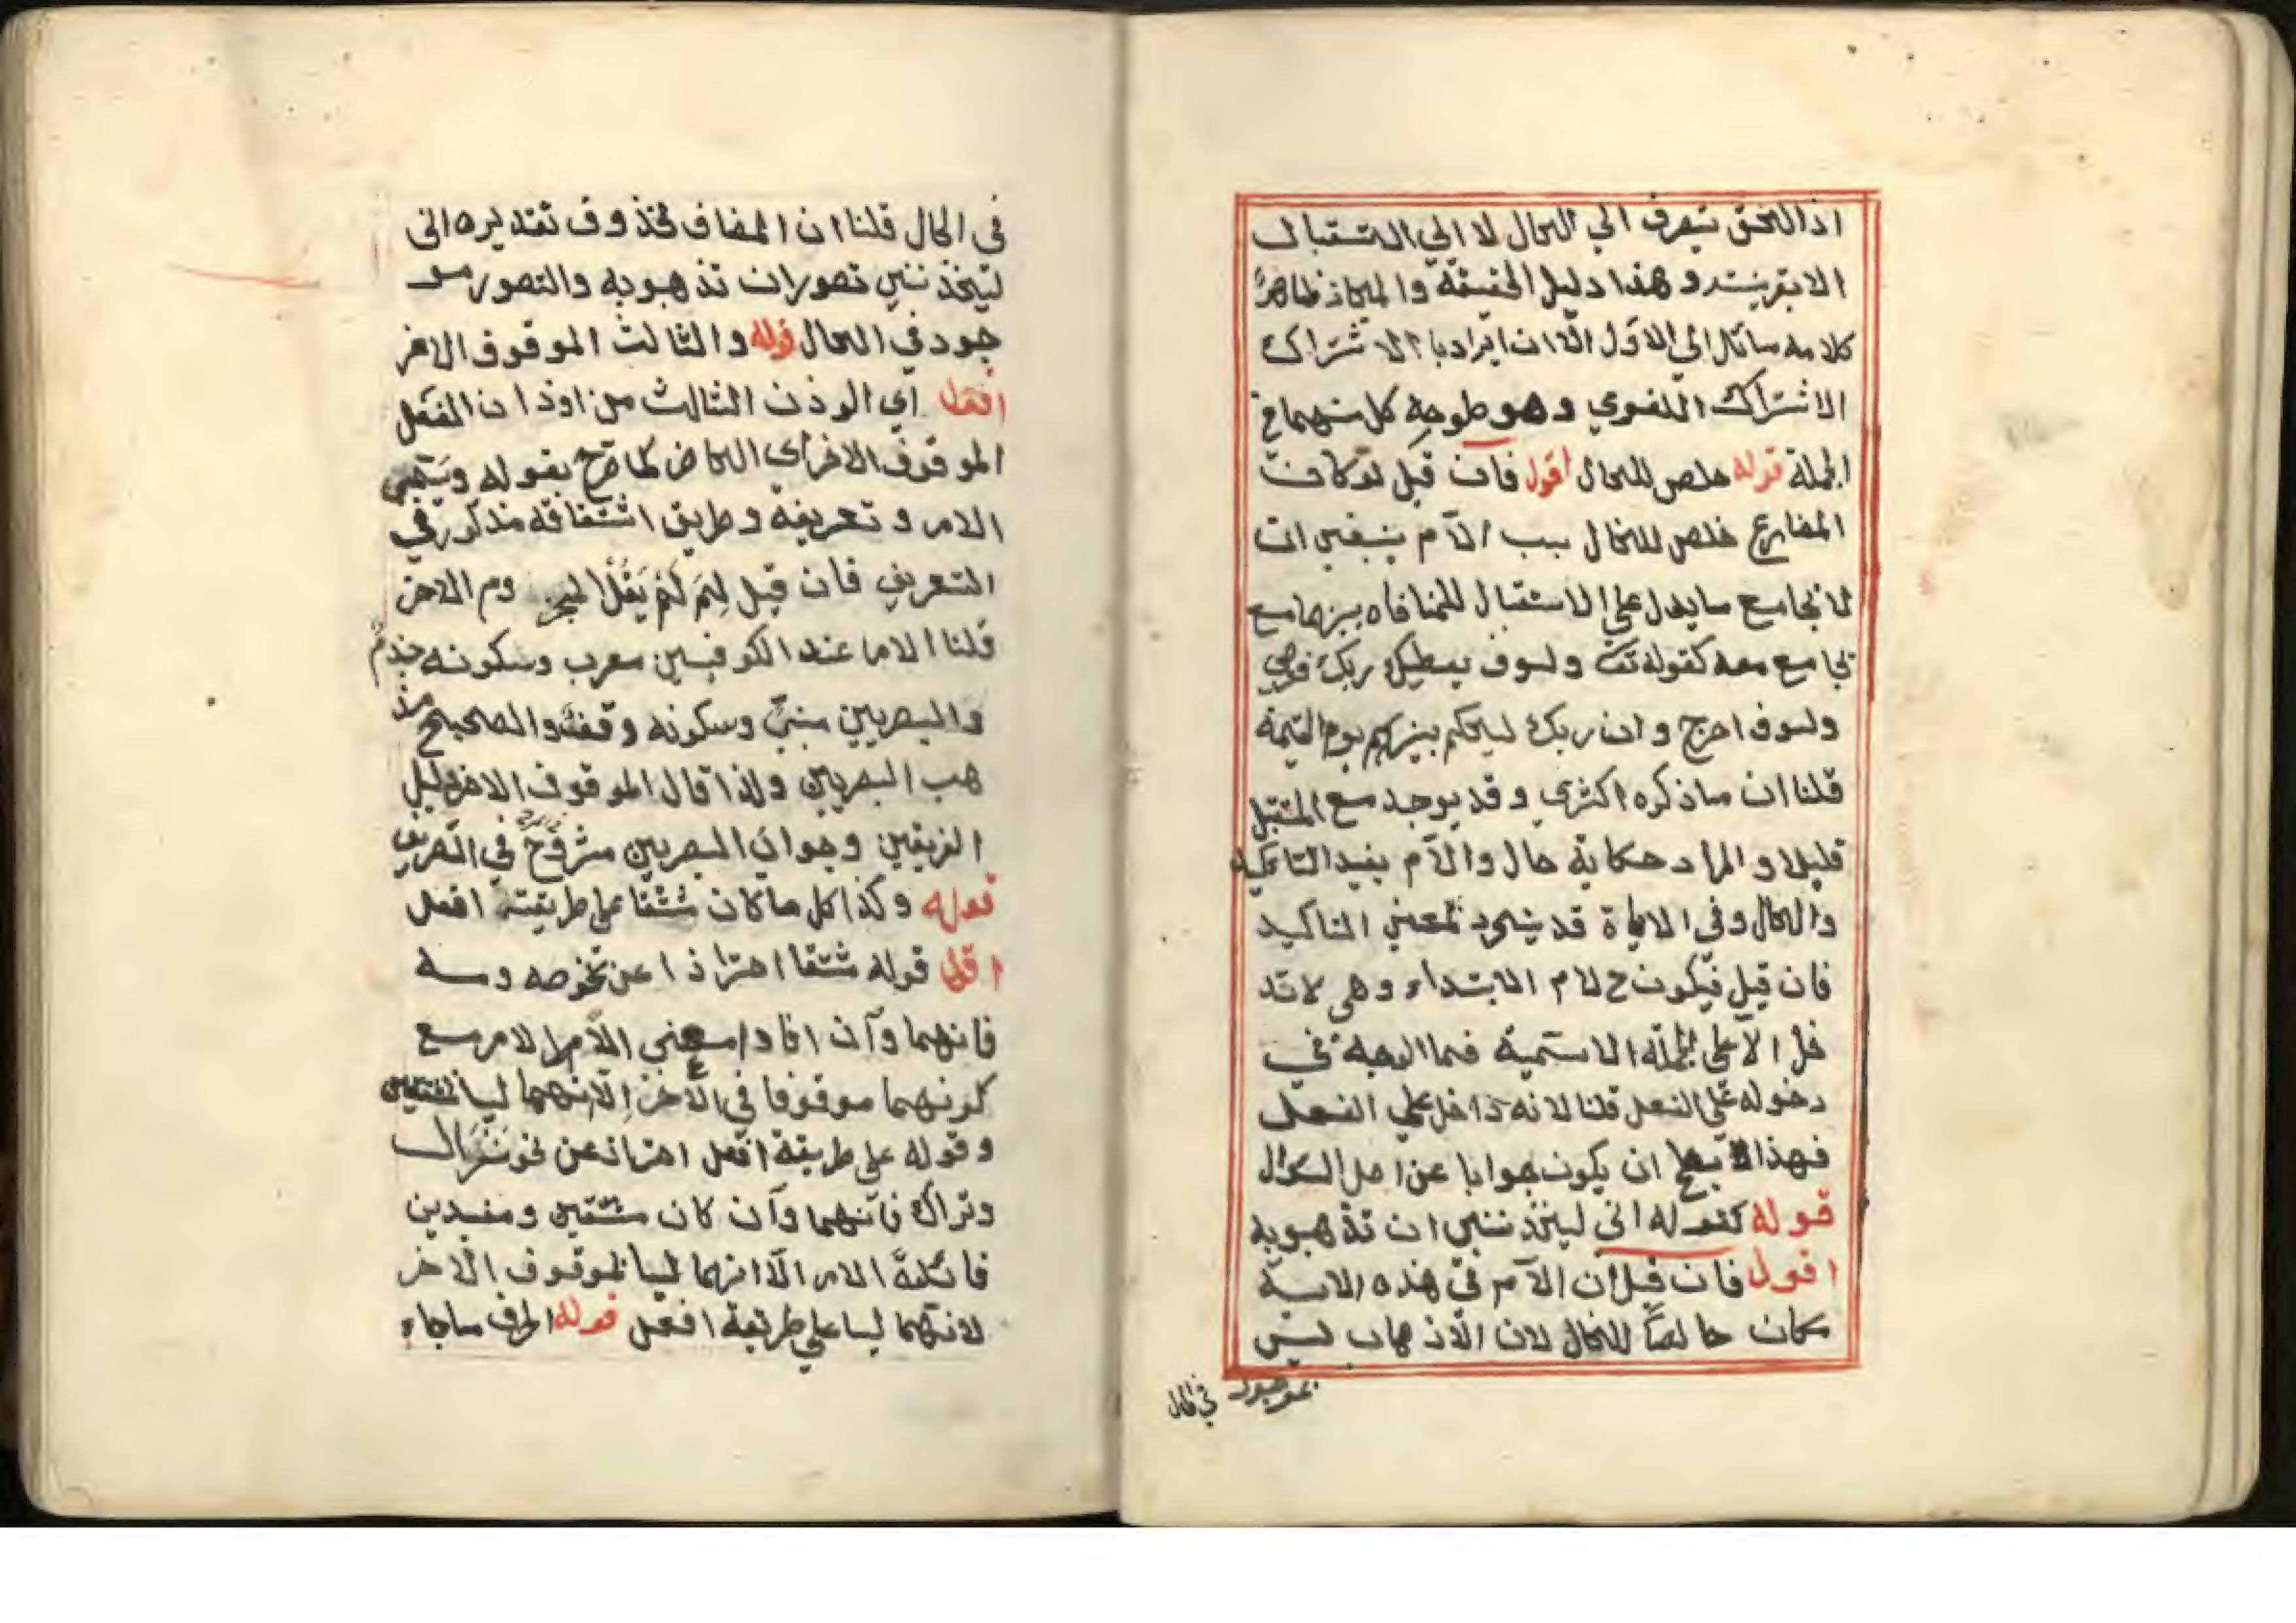 اذا اللحق يتعرف الي الحال لا الي الاستقبال
الا بقرينته و هذا دليل الحقيقة والمجاز فظاهر
كلامه سائل الي الاول الا ان ايراد با الاشتراك
الاشتراك اللغوي و هو طوجه كل منهما في
الجملة قوله خلص للحال اقول فان قيل لو كان
المضارع خلص للحال بسبب الآم ينبغي ان
لا يجامع ما يدل على الاستقبال للمنافاه بينهما مع
يجامع معه كقوله تت ولسوف يعطيك ربك فترضي
ولسوف اخرج و ان ربك ليحكم بينهم يوم القيمة
قلنا ان ما ذكره اكثري و قد يوجد مع المستقبل
قليلا و المراد حكاية حال والآم يفيد التاكيد
والحال و في الاية قد يتجرد لمعني التاكيد
فان قيل فيكون ح لام الابتداء و هي لا تد
خل الا على الجملة الاسمية فما الوجه في
دخوله على الفعل قلنا لانه داخل على الفعل
فهذا يصح ان يكون جوابا عن اصل السوال
قوله كقوله اني ليحزنني ان تذهبوبه
اقول فان قيل ان الآم في هذه الاية
كان خالصا للحال لان الاذهاب ليس
بموجود في الحال
في الحال قلنا ان المضاف محذوف تقديره اني
ليحزنني تصوران تذهبوبه والتصور مو
جود في الحال قوله والثالث الموقوف الاخر
افعل اي الوزن الثالث من اوزان الفعل
الموقوف الاخر اي الحاضر كما صرح بقوله ويسمي
الامر و تعريفه و طريق اشتقاقه مذكور في
التعريف فان قيل لِمَ لَمْ يَقُلْ المجزوم الاخر
قلنا الامر عند الكوفيين معرب وسكونه جزم
والبصريين مبنيّ وسكونه وقف والصحيح مذ
هب البصريين ولذا قال الموقوف الاخر دليل
الفريقين وجواب البصريين مشروح في التصريف
قوله وكذا كل ما كان مشتقا على طريقة افعل
اقول قوله مشتقا احترازا عن نحو صه ومه
فانهما وآن افادا معني الآمر الامر مع
كونهما موقوفا في الآخر الّا انهما ليسا بمشتقين
وقوله على طريقة افعل احتراز عن نحو نزال
وتراك فانهما وآن كان مشتقين ومفيدين
فائدة الامر الّا انهما ليسا بموقوف الآخر
لانهما ليسا على طريقة افعل قوله الحرف ما جاء